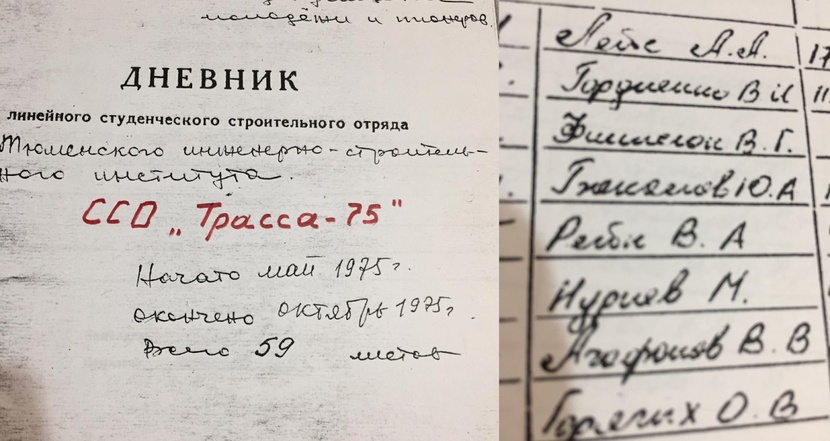 молодёжи и пионеров.
ДНЕВНИК
линейного студенческого строительного отряда
Тюменского инженерно-строитель-
ного института.
ССО „Трасса-75"
Начато май 1975г.
окончено октябрь 1975г.
Всего 59 листов
Лейс А.А.
Гордиенко В И
В. Г.
Ю. А
В. А
Нуриев М.
Агафонов В. В
Горячих О. В